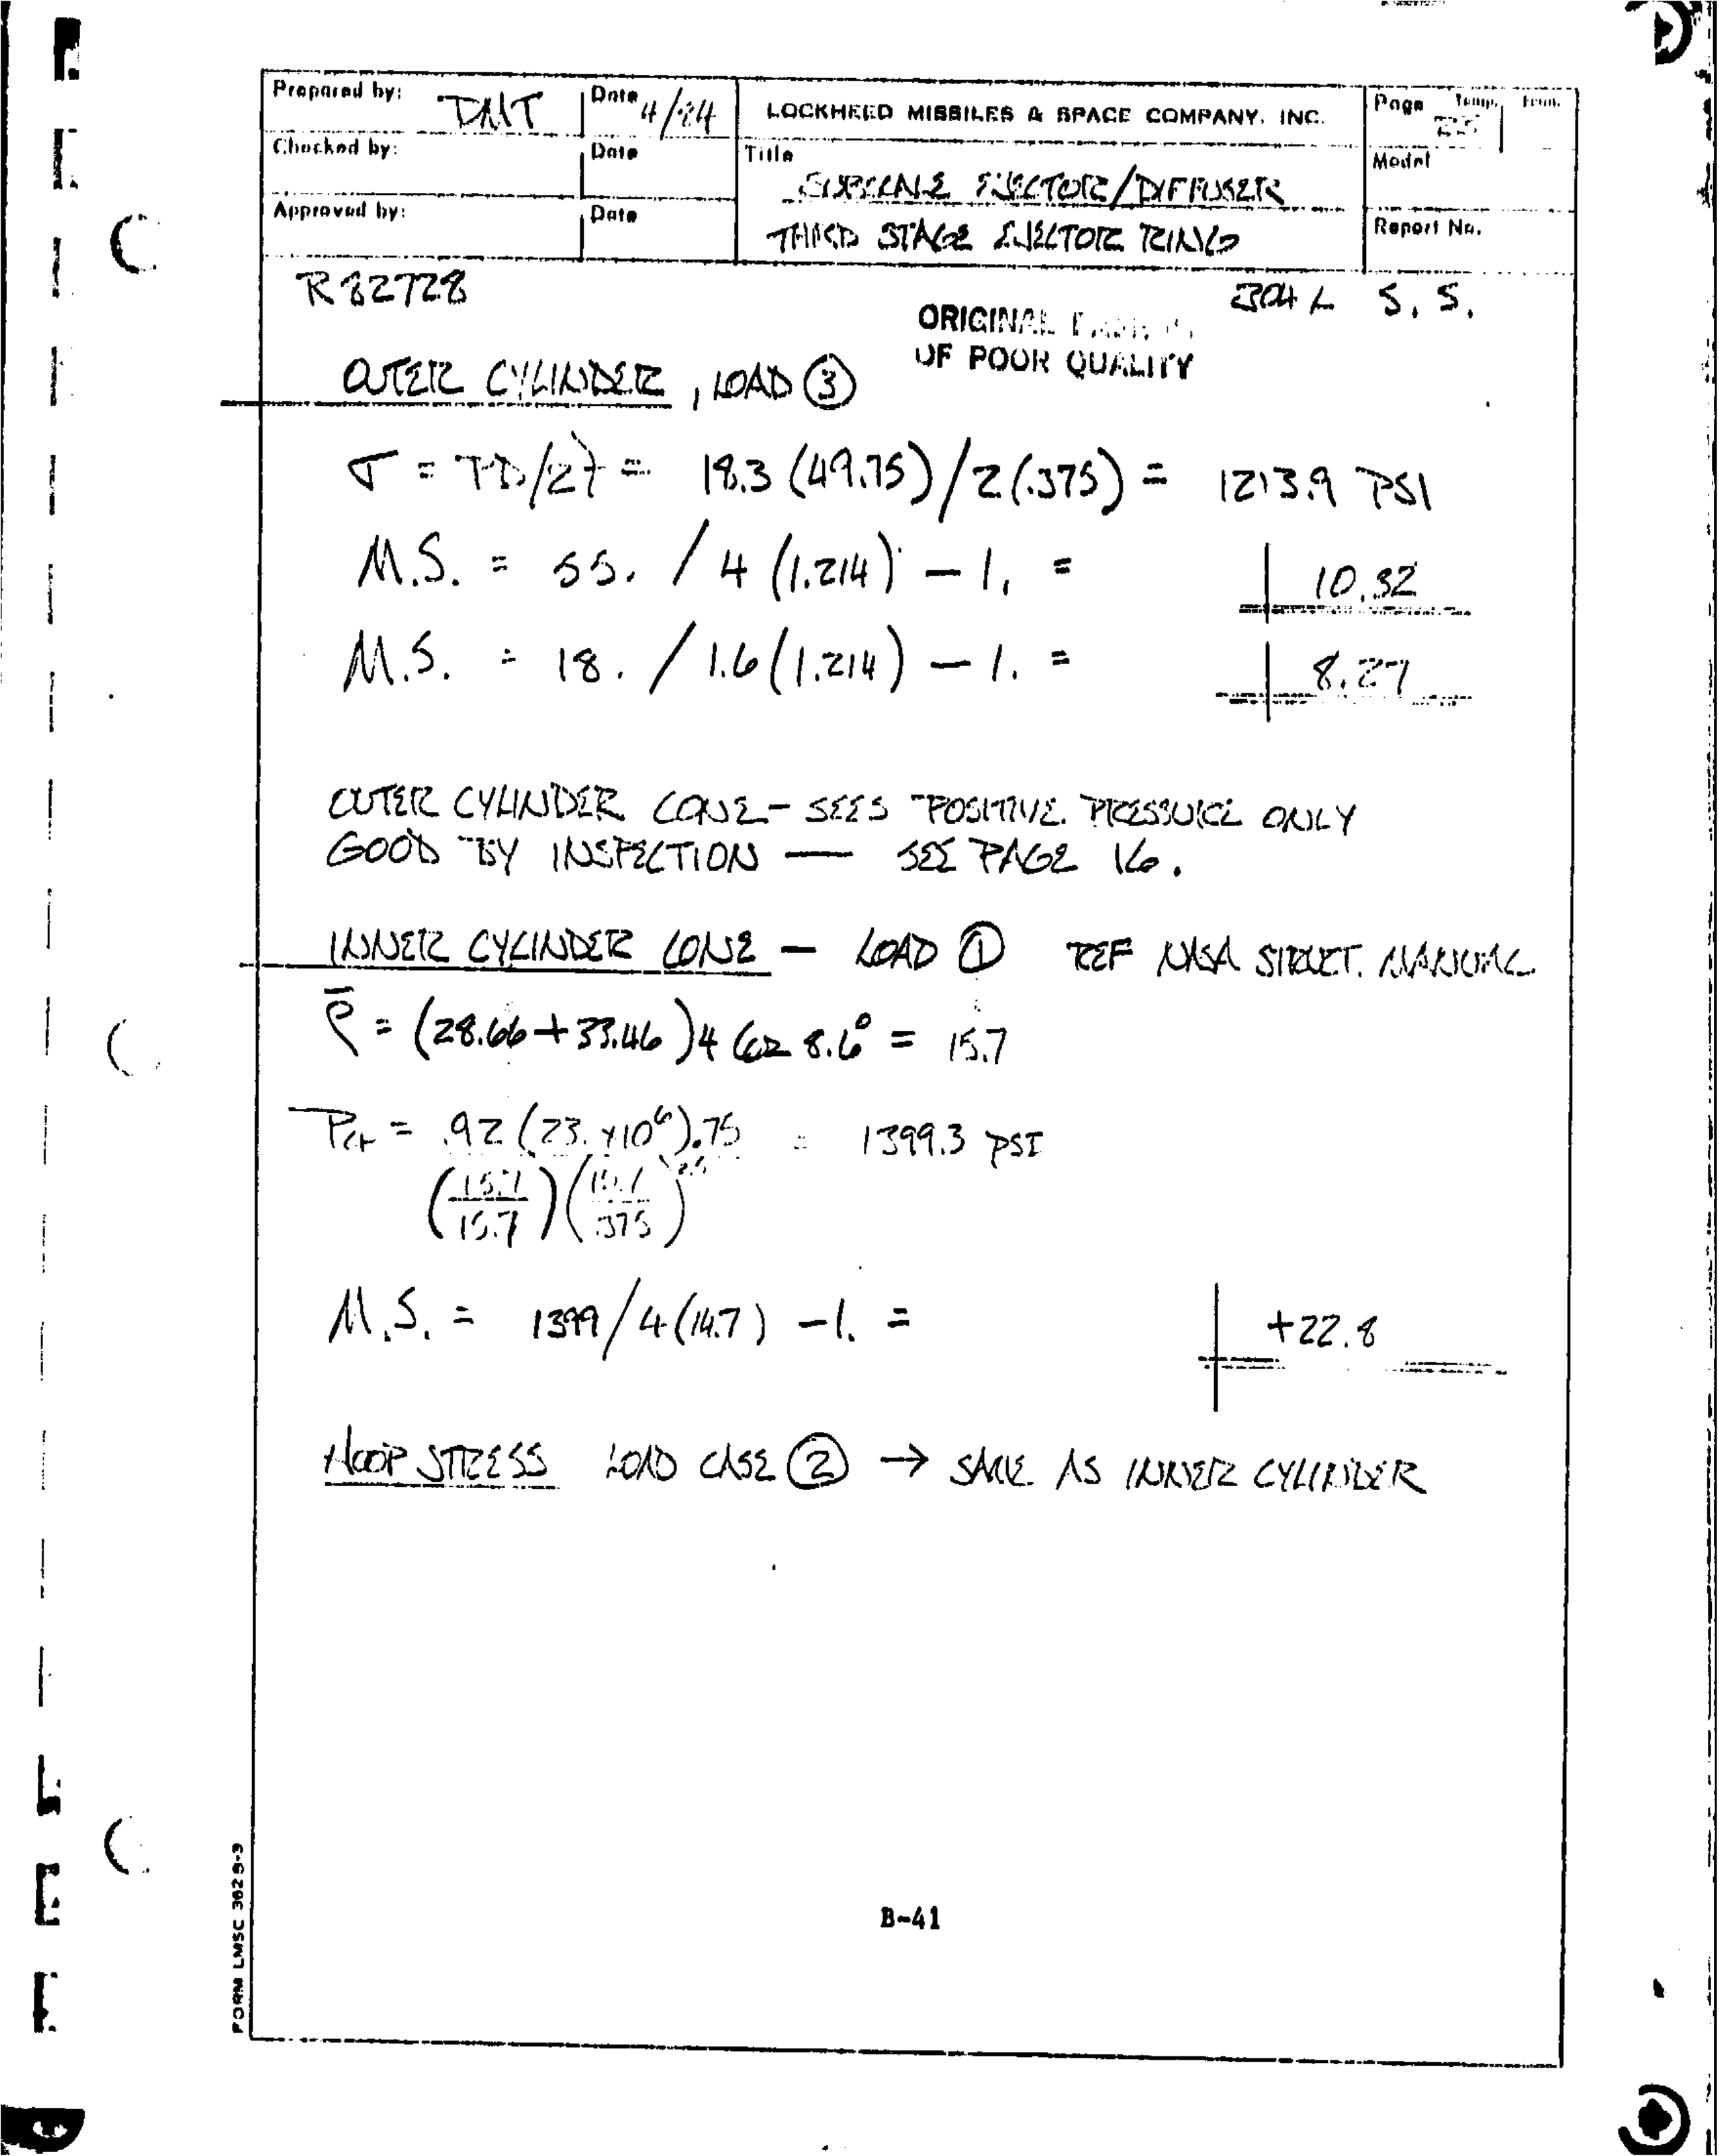 Prepared by: DMT Date 4/84 LOCKHEED MISSILES & SPACE COMPANY, INC. Page Temp. Perm.
Checked by: Date Title Model
SUBSCALE EJECTOR/DIFFUSER
Approved by: Date THIRD STAGE EJECTOR RING Report No.
R82728 304 L S.S.
ORIGINAL
OF POOR QUALITY
OUTER CYLINDER, LOAD ③
σ = PD/2t = 18.3 (49.75)/2(.375) = 1213.9 PSI
M.S. = 55. / 4 (1.214) - 1. = 10.32
M.S. = 18. / 1.6 (1.214) - 1. = 8.27
OUTER CYLINDER CONE - SEES POSITIVE PRESSURE ONLY
GOOD BY INSPECTION — SEE PAGE 16.
INNER CYLINDER CONE - LOAD ① REF NASA STRUCT. MANUAL
ρ̄ = (28.66 + 33.46)4 cos 8.6° = 15.7
Pcr = .92 (23. x10⁶).75 = 1399.3 PSI
(15.7/15.7)(15.7/.375)
M.S. = 1399/4(14.7) - 1. = +22.8
HOOP STRESS LOAD CASE ② → SAME AS INNER CYLINDER
B-41
FORM LMSC 3629-3